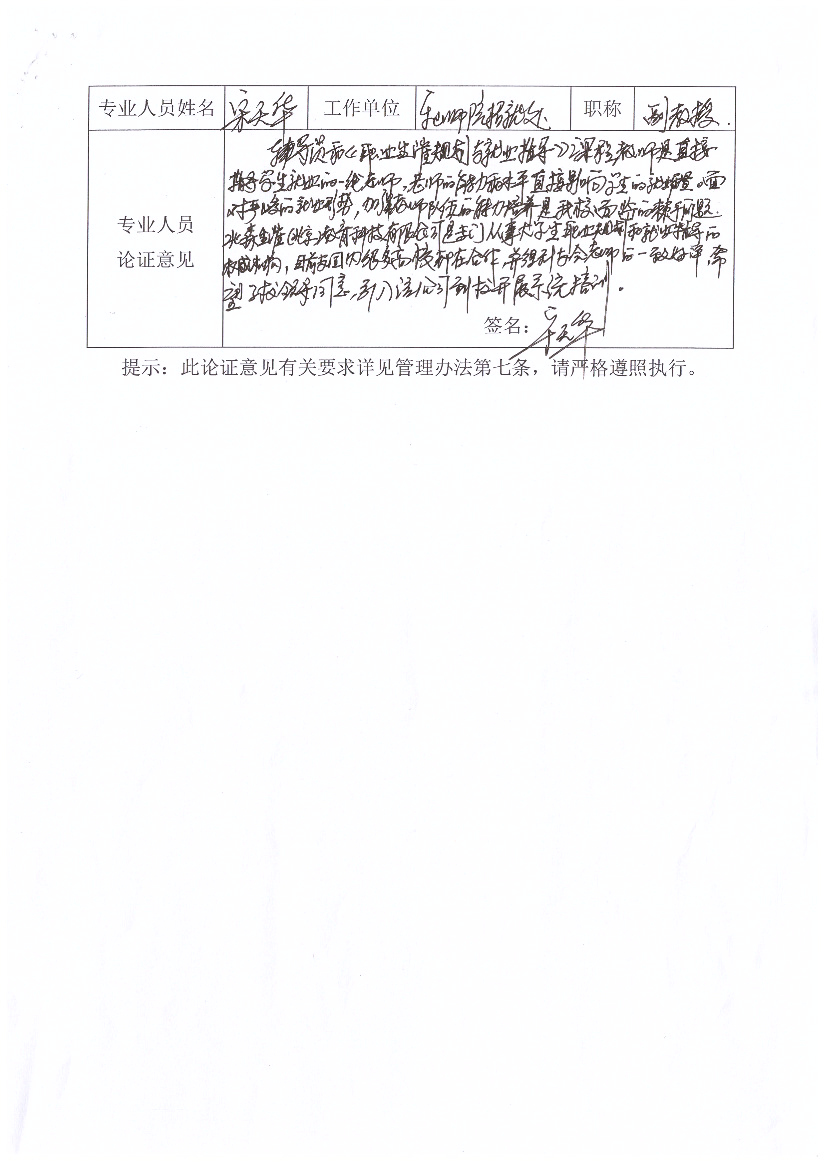 专业人员姓名 宋天华 工作单位 乐山师院招就处 职称 副教授.
专业人员
论证意见
辅导员和《职业生涯规划与就业指导》课程老师是直接
指导学生就业的一线老师,老师的能力和水平直接影响学生的就业质量。面
对严峻的就业形势,加强老师队伍的能力培养是我校面临的棘手问题.
北森生涯(北京)教育科技有限公司是专门从事大学生职业规划和就业指导的
权威机构,目前与国内很多高校都在合作,并得到与会老师的一致好评,希
望学校领导同意,引入该公司到校开展系统培训。
签名:宋天华
提示:此论证意见有关要求详见管理办法第七条,请严格遵照执行。